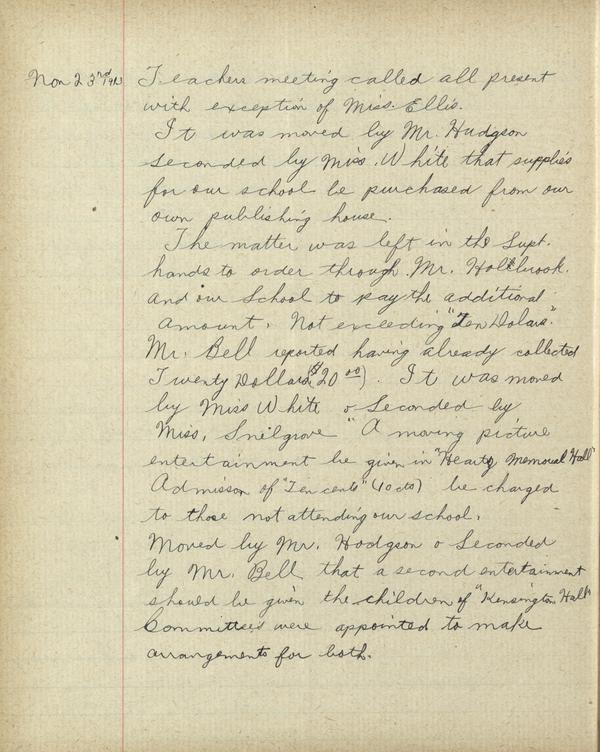 Nov 23rd Teachers meeting called all present
with exception of Miss. Ellis.
It was moved by Mr. Hudgson
seconded by Miss. White that supplies
for our school be purchased from our
own publishing house.
The matter was left in the Supt.
hands to order through Mr. Holtbrook.
and our School to pay the additional
amount. Not exceeding "Ten Dolars."
Mr. Bell reported having already collected
Twenty Dollars ($20 00). It was moved
by Miss White & Seconded by
Miss. Snelgrove "A moving picture
entertainment be given in "Hearty Memorial Hall"
Admisson of "Ten cents" (10 cts) be charged
to those not attending our school.
Moved by Mr. Hodgson & Seconded
by Mr. Bell that a second entertainment
should be given the children of "Kensington Hall"
Committees were appointed to make
arrangements for both.